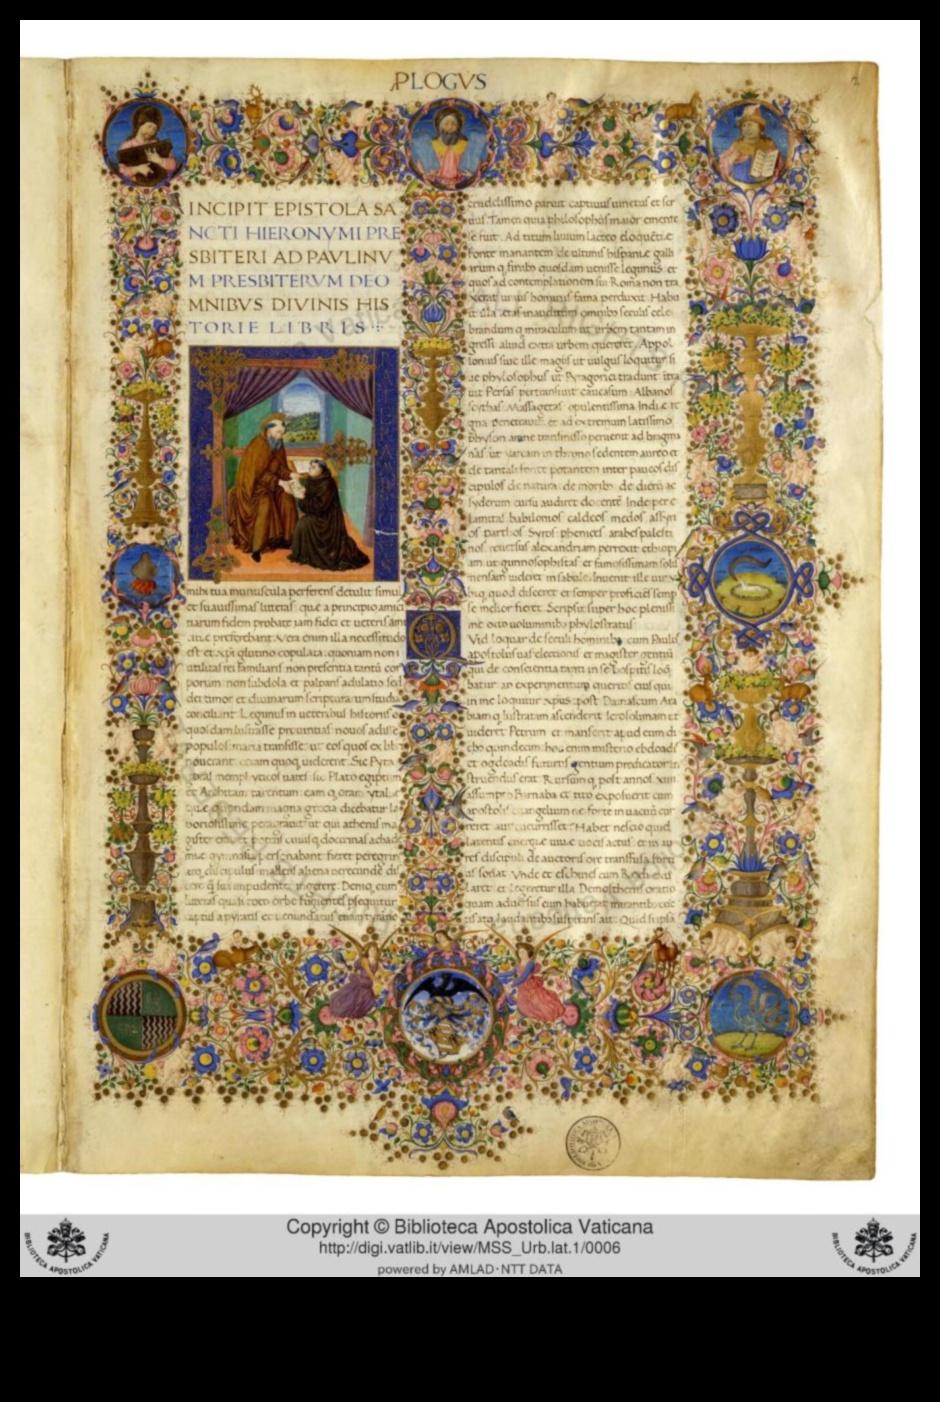 PLOGVS
INCIPIT EPISTOLA SA
NCTI HIERONVMI PRE
SBITERI AD PAVLINV
M PRESBITERVM DEO
MNIBVS DIVINIS HIS
TORIE LIBRIS
mihi tua munuscula perferens detulit simul
et suauissimas litteras que a principio amici
tiarum fidem probate iam fidei et ueteris ami
preferebant. Vera enim illa necessitudo
est et xpi glutino copulata. quam non
utilitas rei familiaris non presentia tantu cor
porum. non subdola et palpans adulatio sed
dei timor et diuinarum scripturarum studia
conciliant. Legimus in ueteribus historiis
quosdam lustrasse prouintias nouos adisse
populos maria transisse. ut eos quos ex libris
nouerant coram quoque uiderent. Sic Pyta
memphiticos uates sic Plato egiptum
et Architam tarentinum eamque oram ytalie
que quondam magna grecia dicebatur la
boriosissime peragrauit ut qui athenis ma
gister erat et potens cuiusque doctrinas achade
mie gymnasia personabant fieret peregrinus
atque discipulus malens aliena uerecunde dis
cere quam sua impudenter ingerere. Deniq cum
litteras quasi toto orbe fugientes psequitur
captus a pyratis et uenundatus etiam tyranno
crudelissimo paruit captiuus uinctus et ser
uus. Tamen quia philosophus maior emente
se fuit. Ad titum liuium lacteo eloquentie
fonte manantem de ultimis hispanie galli
arum q finibus quosdam uenisse legimus et
quos ad contemplationem sui Roma non tra
xerat unius hominis fama perduxit. Habu
it illa etas inauditum omnibus seculis cele
brandum q miraculum ut urbem tantam in
gressi aliud extra urbem quererent. Appol
lonius siue ille magus ut uulgus loquitur si
ue phylosophus ut Pytagorici tradunt intra
uit Persas pertransiuit caucasum Albanos
scythas Massagetas opulentissima Indie re
gna penetrauit et ad extremum latissimo
physon amne transmisso peruenit ad bragma
nas ut yarcam in throno sedentem aureo et
de tantali fonte potantem inter paucos dis
cipulos de natura de moribus de dierum ac
syderum cursu audiret docentem. Inde per e
lamitas babilonios caldeos medos assyri
os parthos Syros phenices arabes palesti
nos reuersus alexandriam perrexit ethiopi
am ut gunnosophistas et famosissimam solis
mensam uideret in sabulo. Inuenit ille uir u
biq quod disceret et semper proficiens semp
se melior fieret. Scripsit super hoc plenissi
me octo uoluminibus phylostratus
Vid loquar de seculi hominibus cum Paulus
apostolus uas electionis et magister gentium
qui de conscientia tanti in se hospitis loq
batur an experimentum queritis eius qui
in me loquitur xpus. post Damascum Ara
biam q lustratam ascenderit ierosolimam ut
uideret Petrum et manserit apud eum di
ebus quindecim. hoc enim misterio ebdoadis
et ogdoadis futurus gentium predicator in
struendus erat. Rursum q post annos xiiii
assumpto Barnaba et tito exposuerit cum
apostolis euangelium ne forte in uacuum cur
reret aut cucurrisset. Habet nescio quid
latentis energie uiue uocis actus et in au
res discipuli de auctoris ore transfusa forti
us sonat. Vnde et eschines cum Rodi exularet
et legeretur illa Demosthenis oratio
quam aduersus eum habuerat mirantibus cunc
tis atq laudantibus suspirans ait. Quid si ipsam
Copyright © Biblioteca Apostolica Vaticana
http://digi.vatlib.it/view/MSS_Urb.lat.1/0006
powered by AMLAD·NTT DATA
BIBLIOTECA APOSTOLICA VATICANA
BIBLIOTECA APOSTOLICA VATICANA